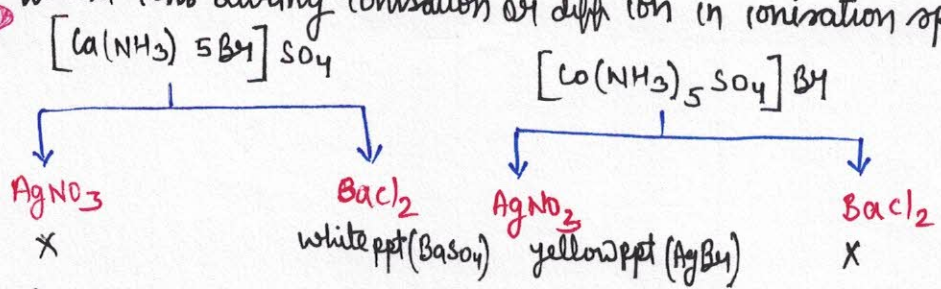 ions during ionisation or diff ion in ionisation
[Ca(NH3) 5Br] SO4
[Co(NH3)5 SO4] Br
AgNO3 BaCl2 AgNO3 BaCl2
X white ppt (BaSO4) yellow ppt (AgBr) X